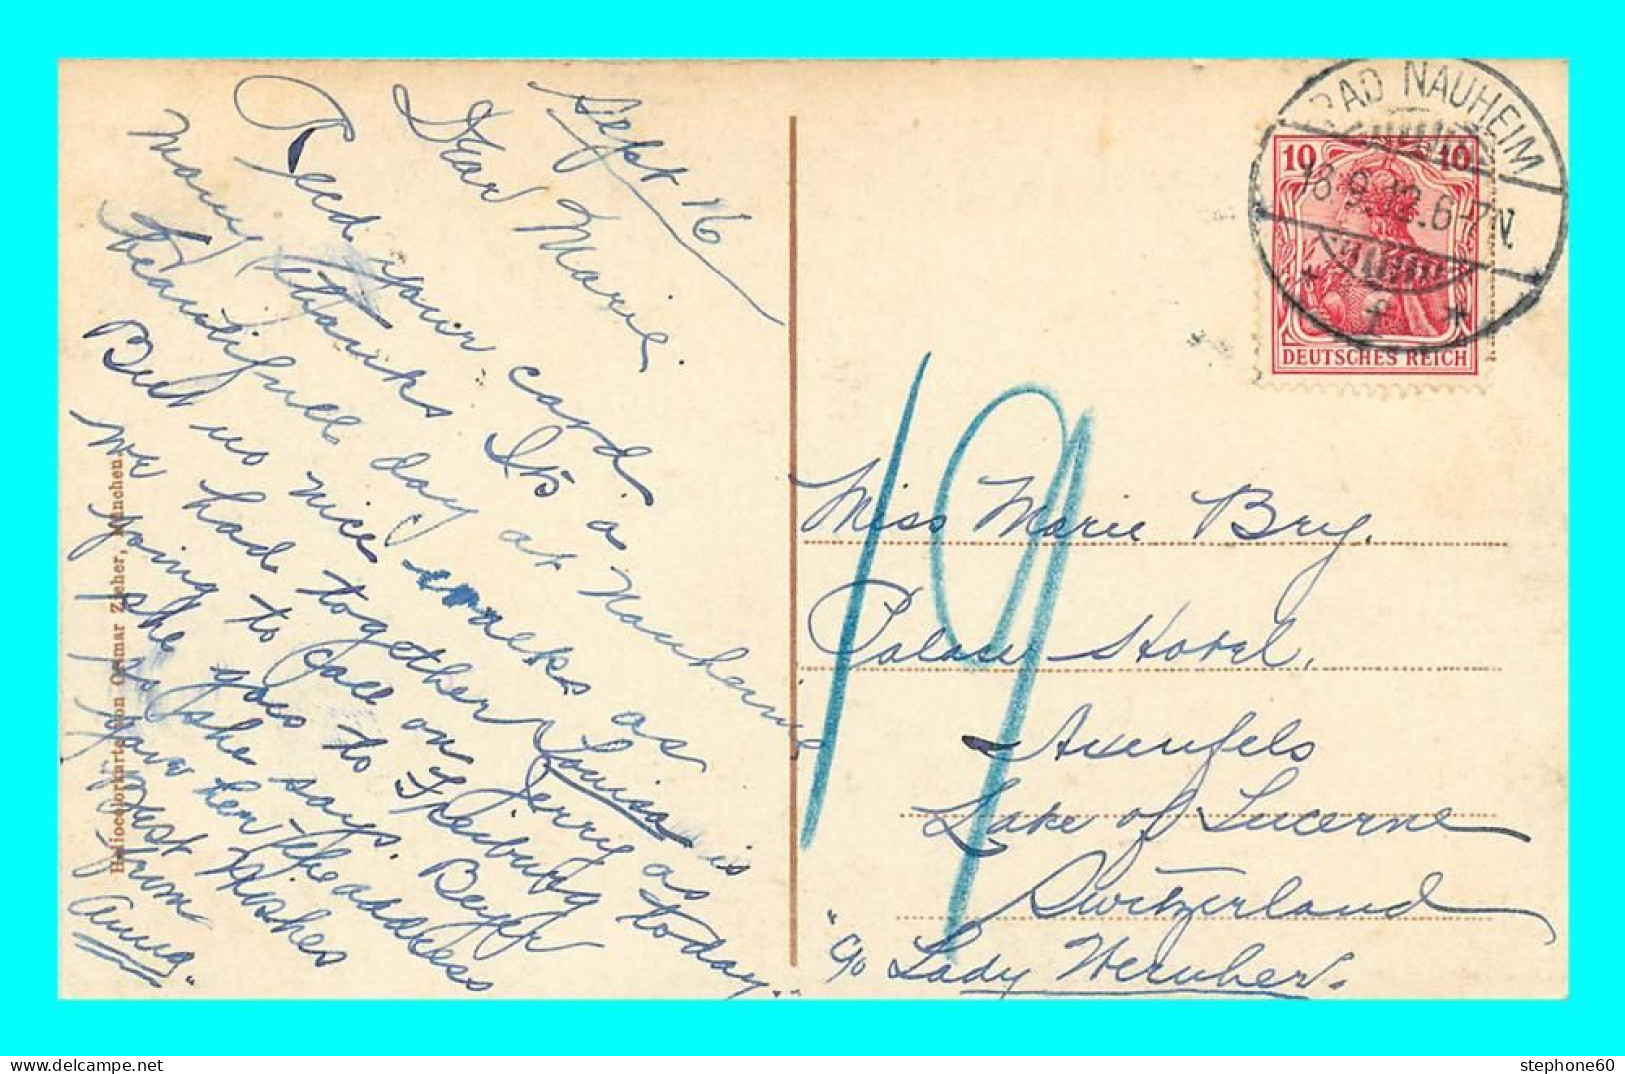 Sept 16
Dear Marie.
Recd your card
Many thanks Its a
beautifull day at Nauheim
But no nice walks as
we had together Louisa is
going to call on Jerry as
she goes to Freiburg today
so she says. Beyer
gave her the address
Best Wishes
from
Anna
Heliocolorkarte von Ottmar Zieher, München.
BAD NAUHEIM
16.9.12.6-7N.
* f *
10 10
DEUTSCHES REICH
19
Miss Marie Bry.
Palase Hotel.
Axenfels
Lake of Lucerne
Switzerland
"c/o Lady Wernher.
stephone60